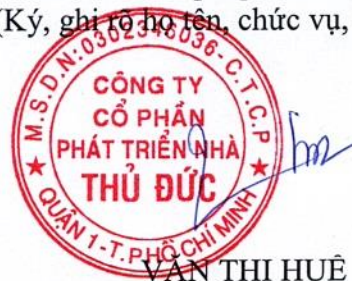 (Ký, ghi rõ họ tên, chức vụ,
M.S.D.N:0302346036-C.T.C.P
CÔNG TY
CỔ PHẦN
PHÁT TRIỂN NHÀ
THỦ ĐỨC
QUẬN 1-T.P HỒ CHÍ MINH
VĂN THỊ HUỆ